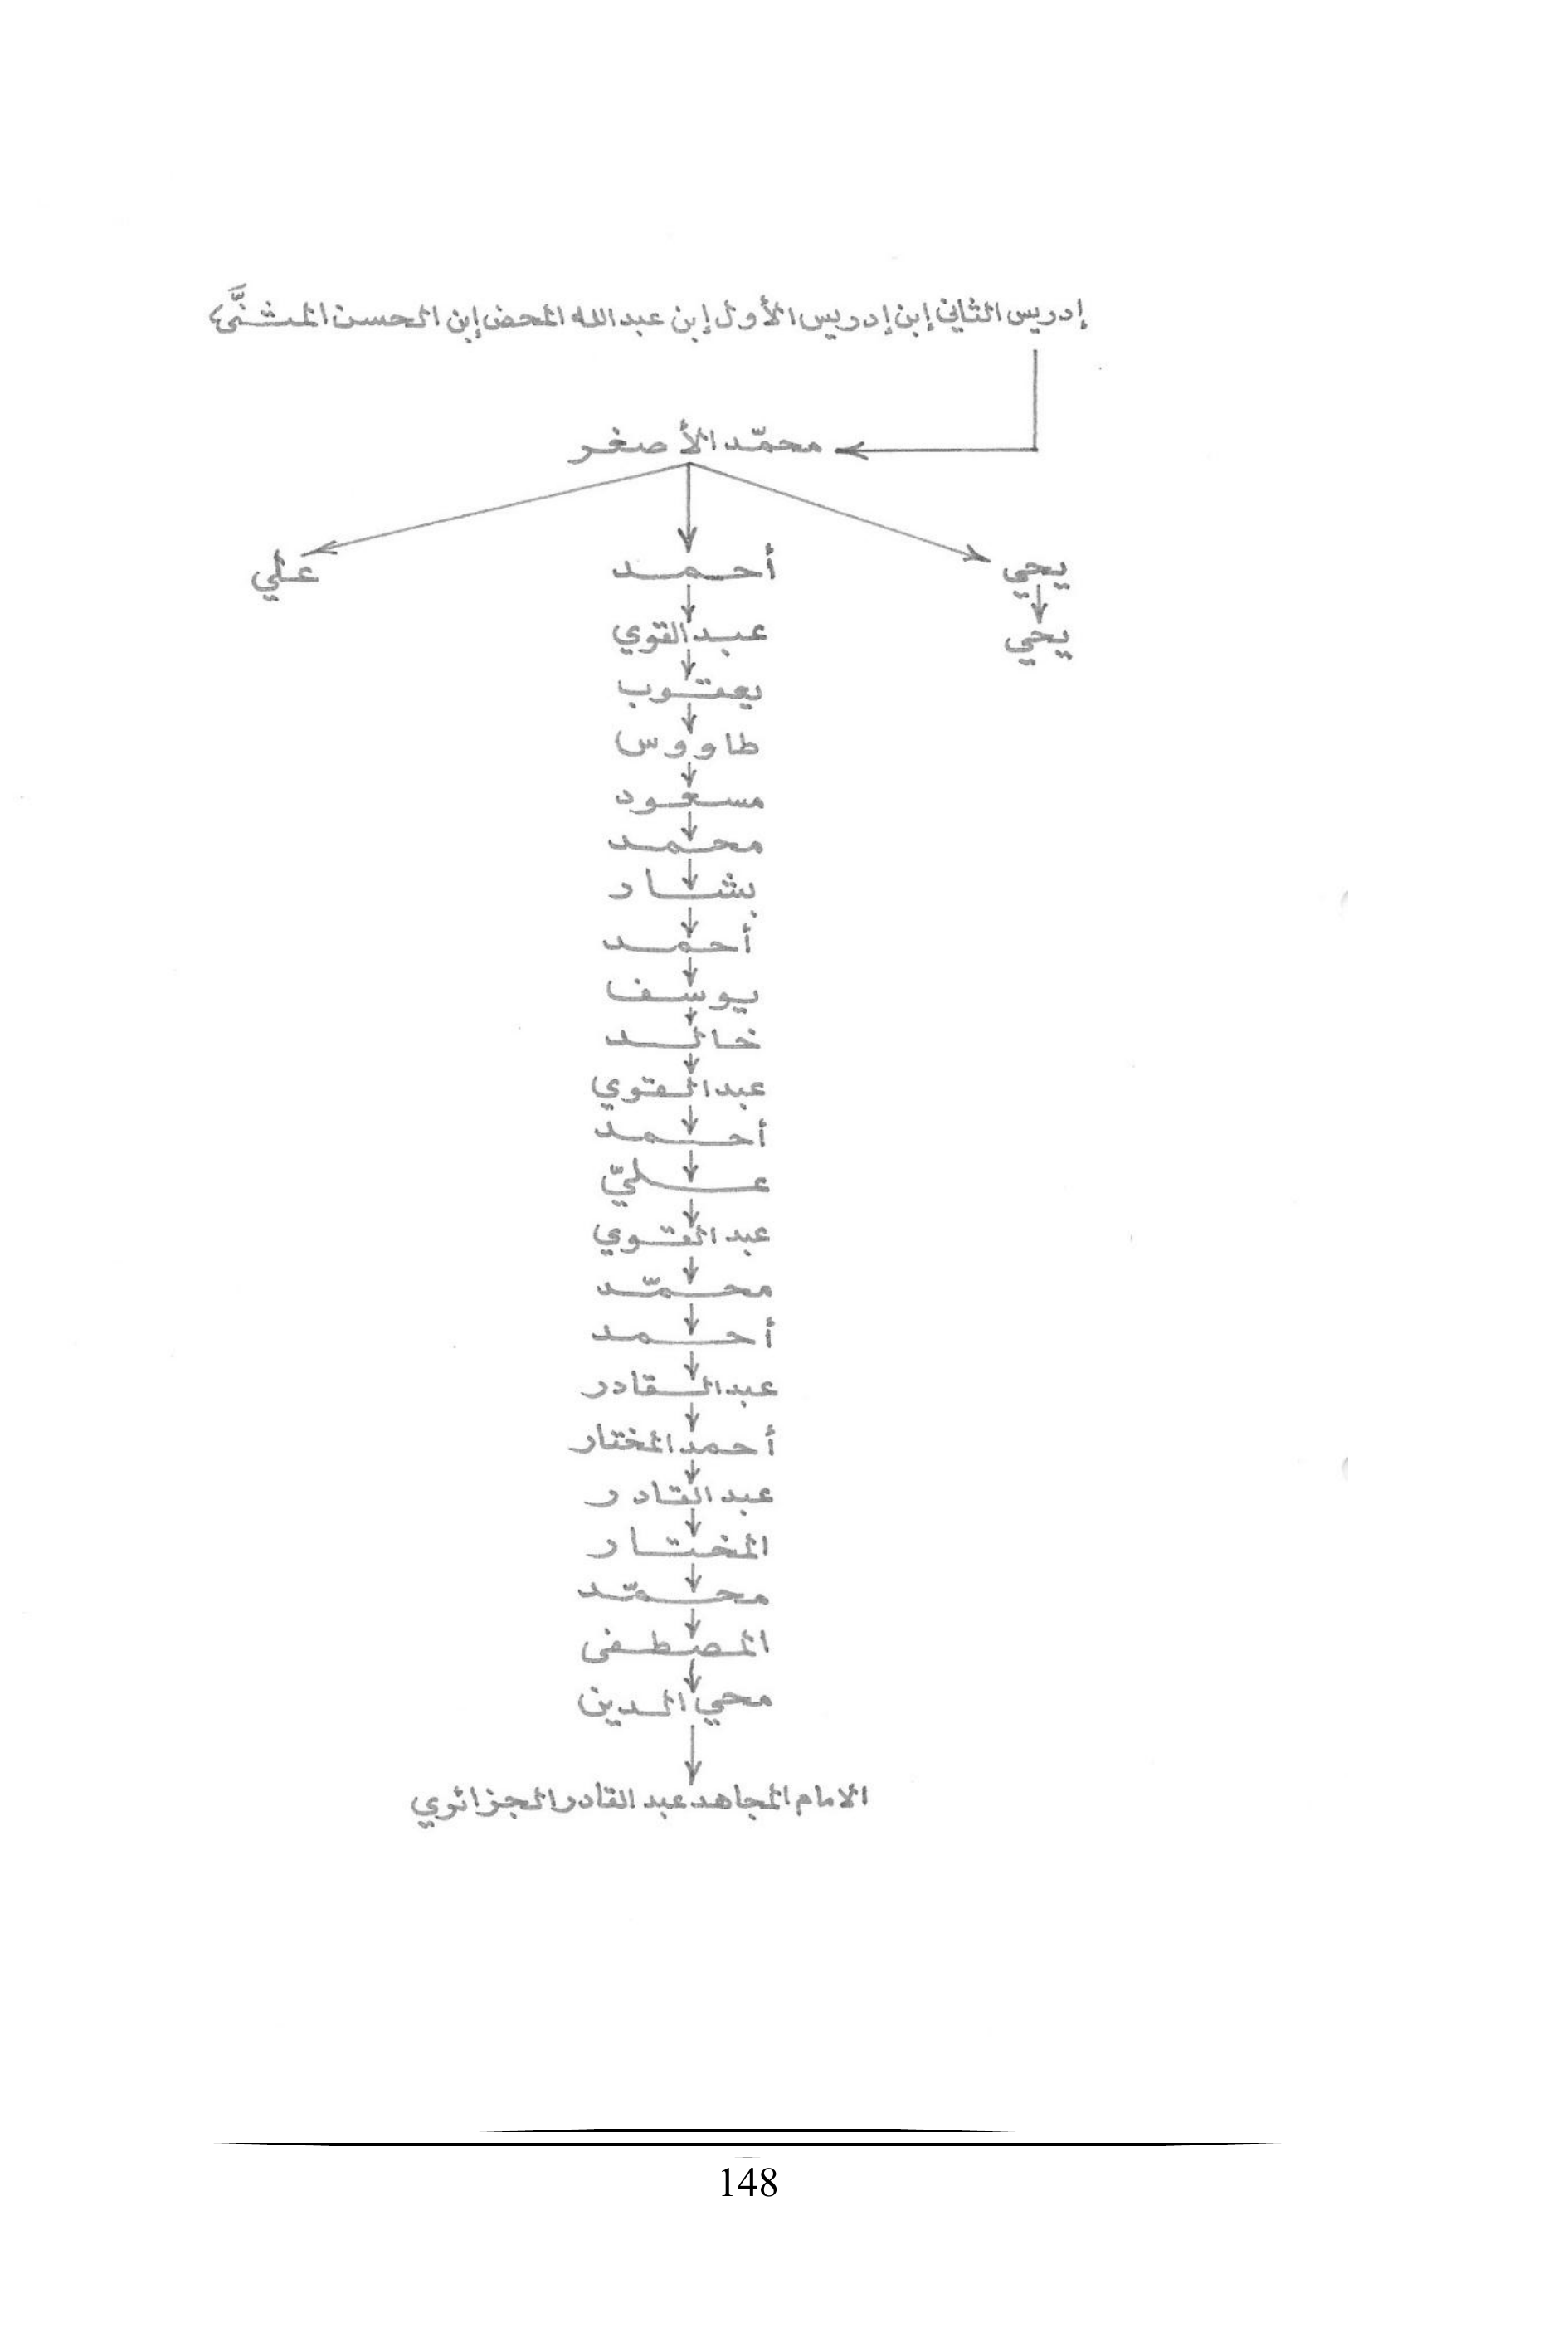 إدريس الثاني إبن إدريس الأول إبن عبد الله المحض إبن الحسن المثنَّى
محمّد الأصغر
يحي
أحمد
علي
عبد القوي
يحي
يعقوب
طاووس
مسعود
محمد
بشار
أحمد
يوسف
خالد
عبد القوي
أحمد
عليّ
عبد القوي
محمّد
أحمد
عبد القادر
أحمد المختار
عبد القادر
المختار
محمّد
المصطفى
محي الدين
الامام المجاهد عبد القادر الجزائري
148